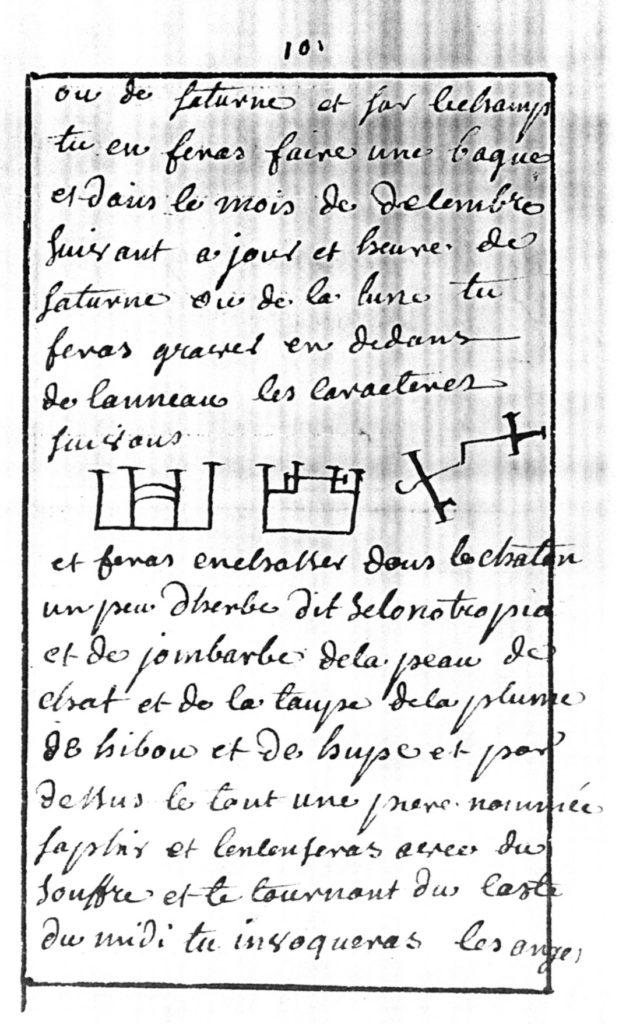 101
ou de saturne et sur le champ
tu en feras faire une baque
et dans le mois de decembre
suivant a jour et heure de
saturne ou de la lune tu
feras graver en dedans
de lanneau les caracteres
suivans
et feras enchasser dans le chaton
un peu dherbe dit helonotropia
et de jombarbe dela peau de
chat et de la taupe dela plume
de hibou et de hupe et par
dessus le tout une piere nommée
saphir et lencenseras avec du
souffre et te tournant du coste
du midi tu invoqueras les anges